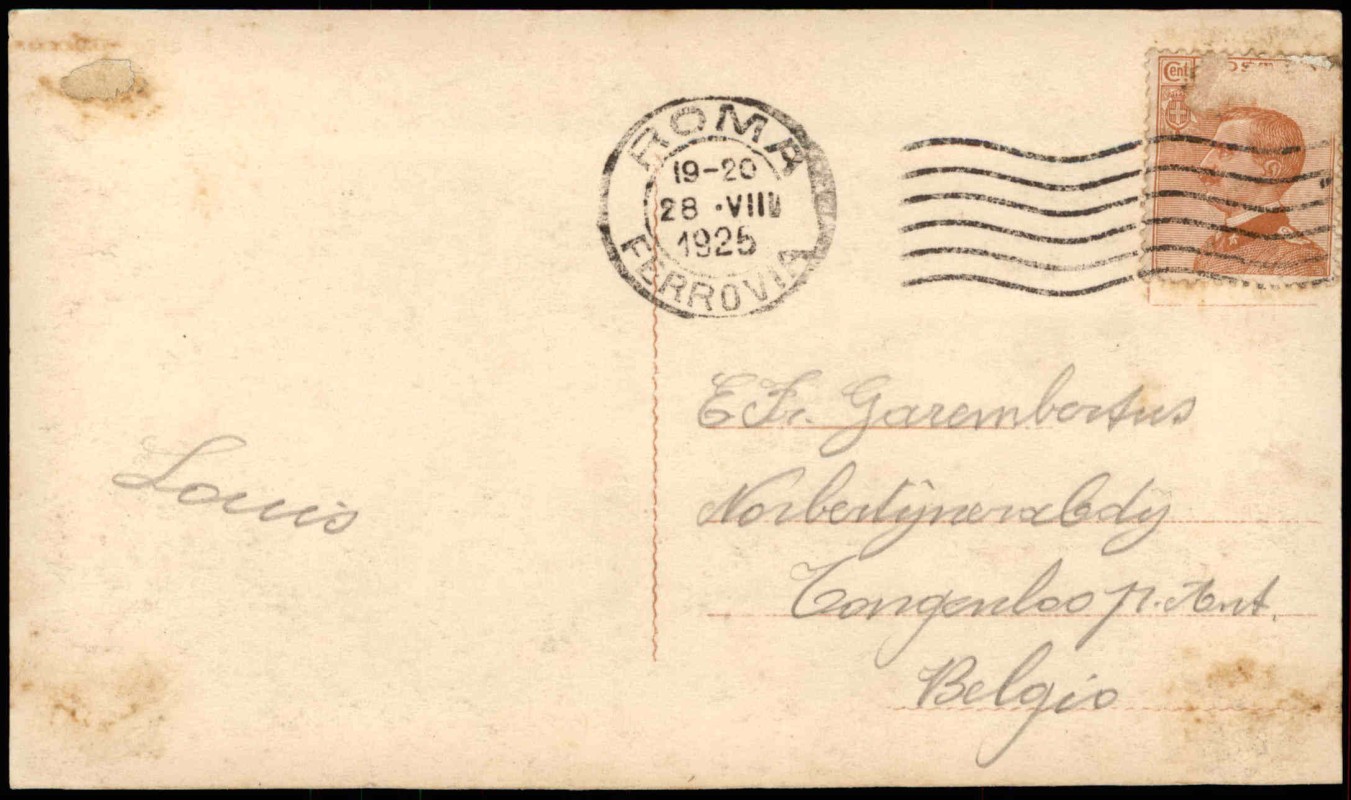 Cent
ROMA
19-20
28 · VIII
1925
FERROVIA
E Fr. Garembertus
Norbertijnerabdij
Tongerloo p. Ant.
Belgio
Louis